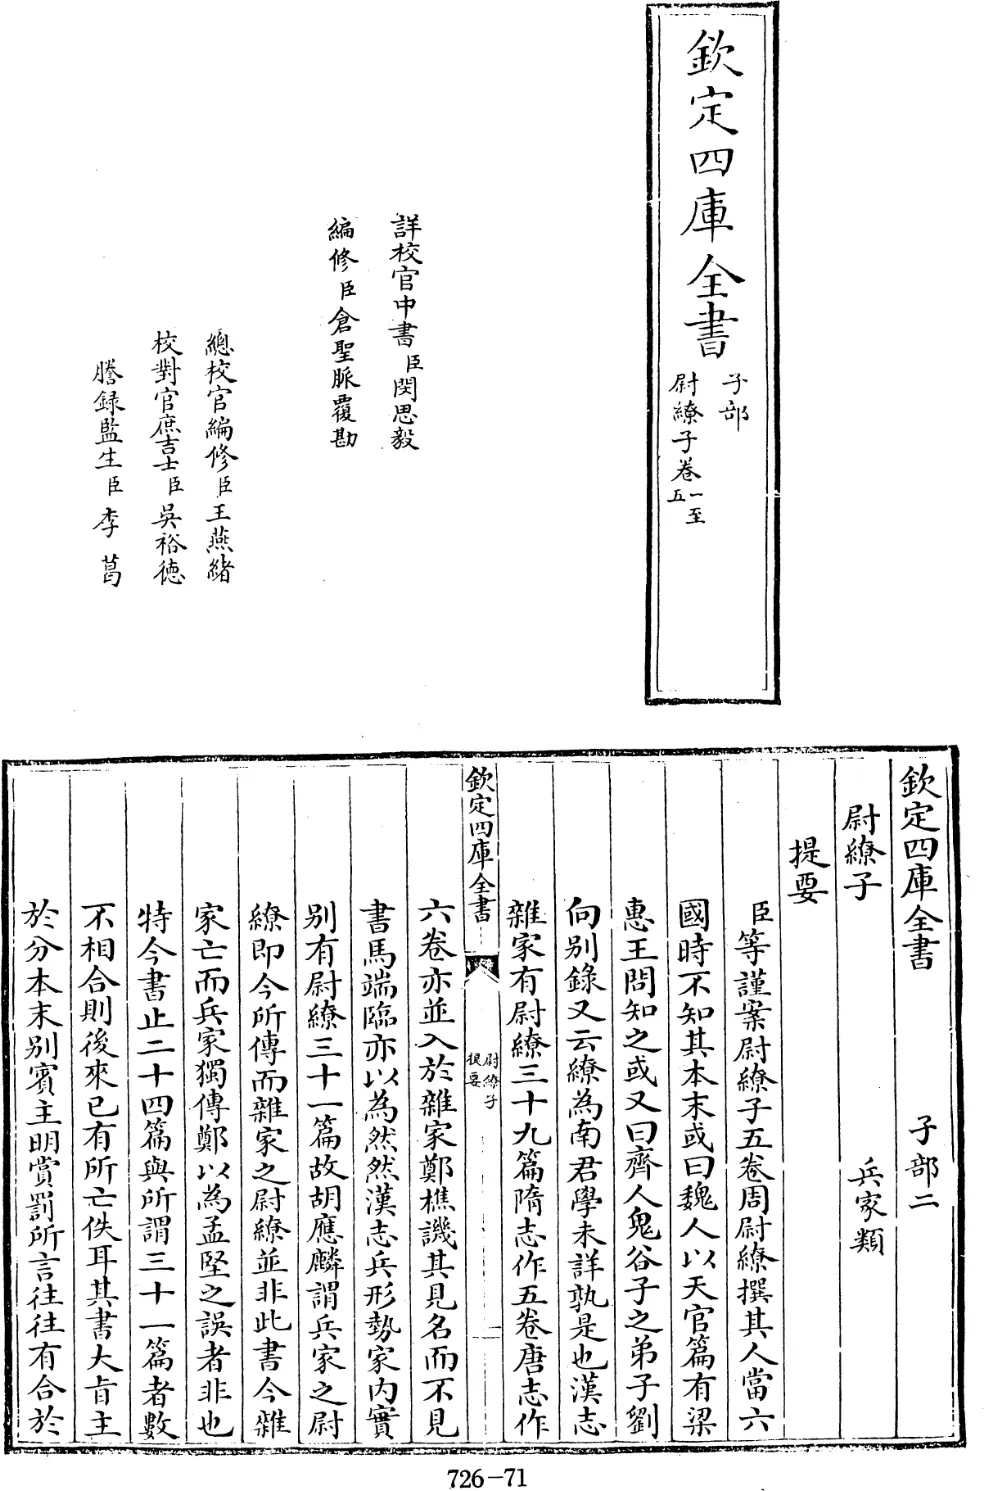 欽定四庫全書
子部
尉繚子卷一至五
詳校官中書臣閔思毅
編修臣倉聖脈覆勘
總校官編修臣王燕緒
校對官庶吉士臣吳裕德
謄錄監生臣李葛
欽定四庫全書 子部二
尉繚子 兵家類
提要
臣等謹案尉繚子五卷周尉繚撰其人當六
國時不知其本末或曰魏人以天官篇有梁
惠王問知之或又曰齊人鬼谷子之弟子劉
向別錄又云繚為商君學未詳孰是也漢志
雜家有尉繚三十九篇隋志作五卷唐志作
欽定四庫全書
尉繚子
提要
一
六卷亦並入於雜家鄭樵譏其見名而不見
書馬端臨亦以為然然漢志兵形勢家內實
別有尉繚三十一篇故胡應麟謂兵家之尉
繚即今所傳而雜家之尉繚並非此書今雜
家亡而兵家獨傳鄭以為孟堅之誤者非也
特今書止二十四篇與所謂三十一篇者數
不相合則後來已有所亡佚耳其書大旨主
於分本末別賓主明賞罰所言往往有合於
726-71